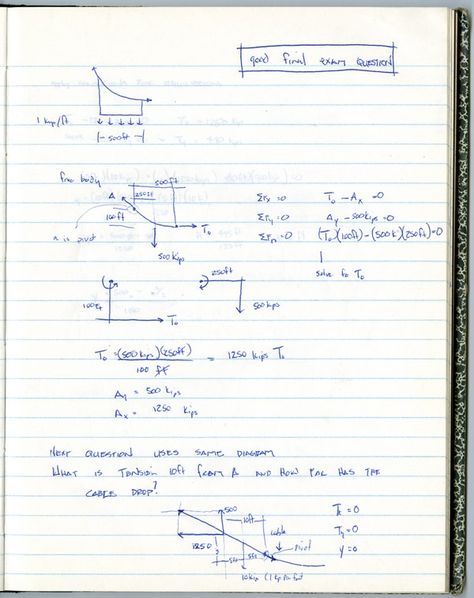 good final exam question
1 kip/ft
500ft
free body
500ft
A 250ft
100ft
T₀
A is pivot
500 kips
ΣFx = 0 T₀ - Ax = 0
ΣFy = 0 Ay - 500kips = 0
ΣFm = 0 (T₀)(100ft) - (500k)(250ft) = 0
solve for T₀
100ft
T₀
250ft
500kips
T₀ = (500 kips)(250ft) = 1250 kips T₀
100 ft
Ay = 500 kips
Ax = 1250 kips
NEXT QUESTION USES SAME DIAGRAM
WHAT IS TENSION 10ft FROM A AND HOW FAR HAS THE
CABLE DROP?
500
10ft
cable
1250
pivot
5ft 5ft
10kip (1 kip per foot
Tx = 0
Ty = 0
y = 0